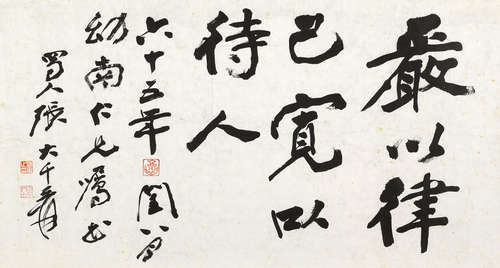 嚴以律
己寬以
待人
六十五年閏八月
幼南仁兄屬書
蜀人張大千爰